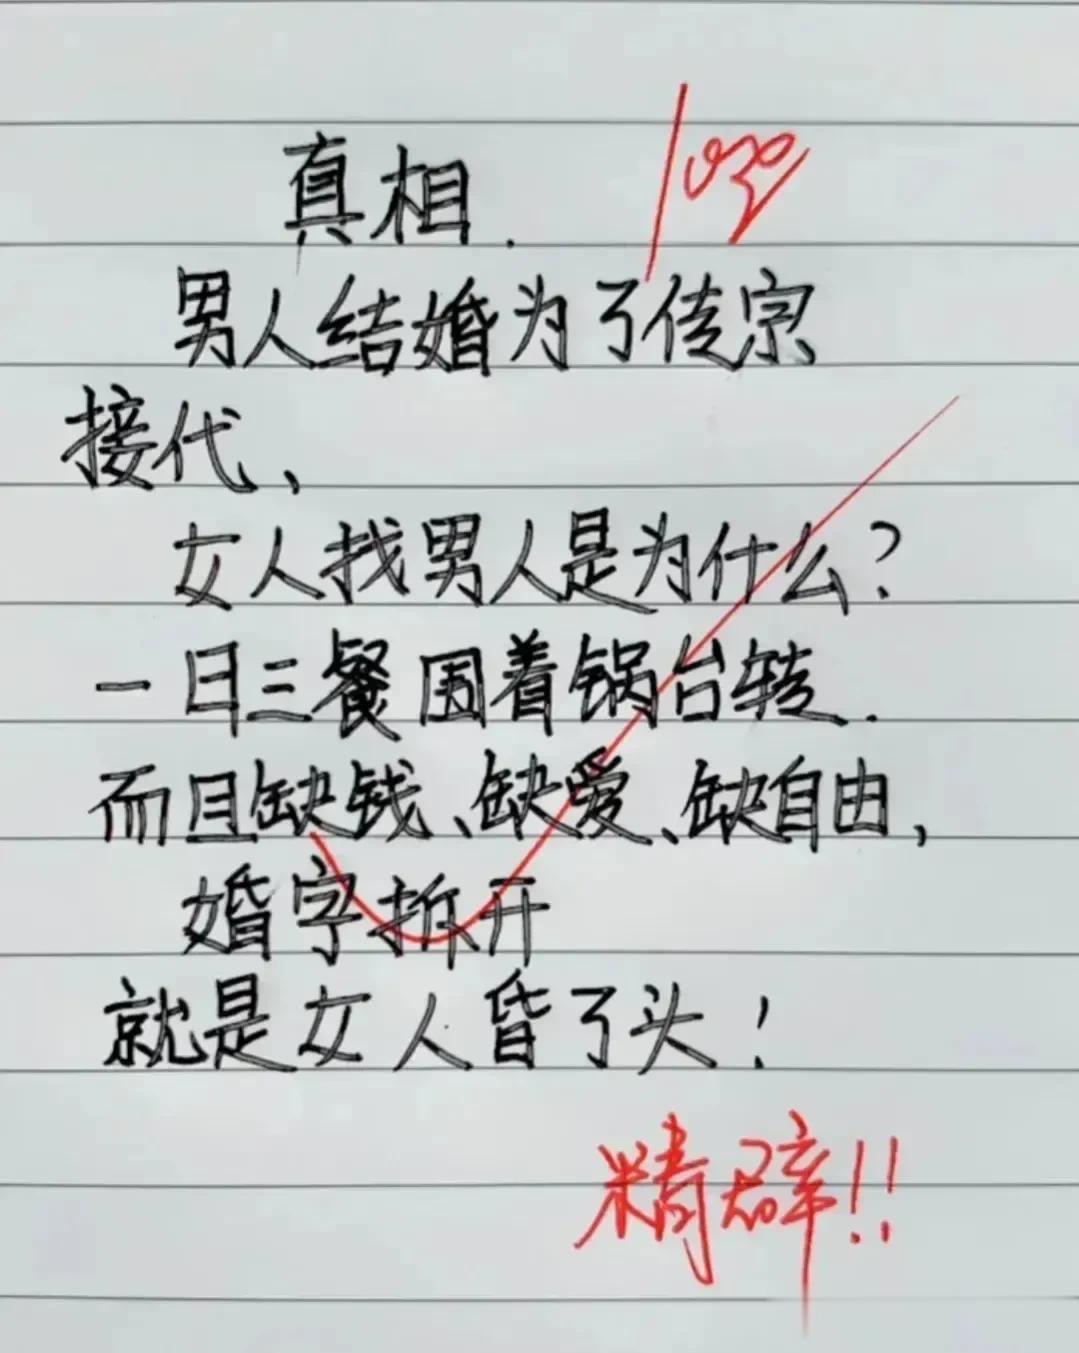 真相.
100
男人结婚为了传宗
接代、
女人找男人是为什么?
一日三餐围着锅台转.
而且缺钱、缺爱、缺自由,
婚字拆开
就是女人昏了头!
精辟!!